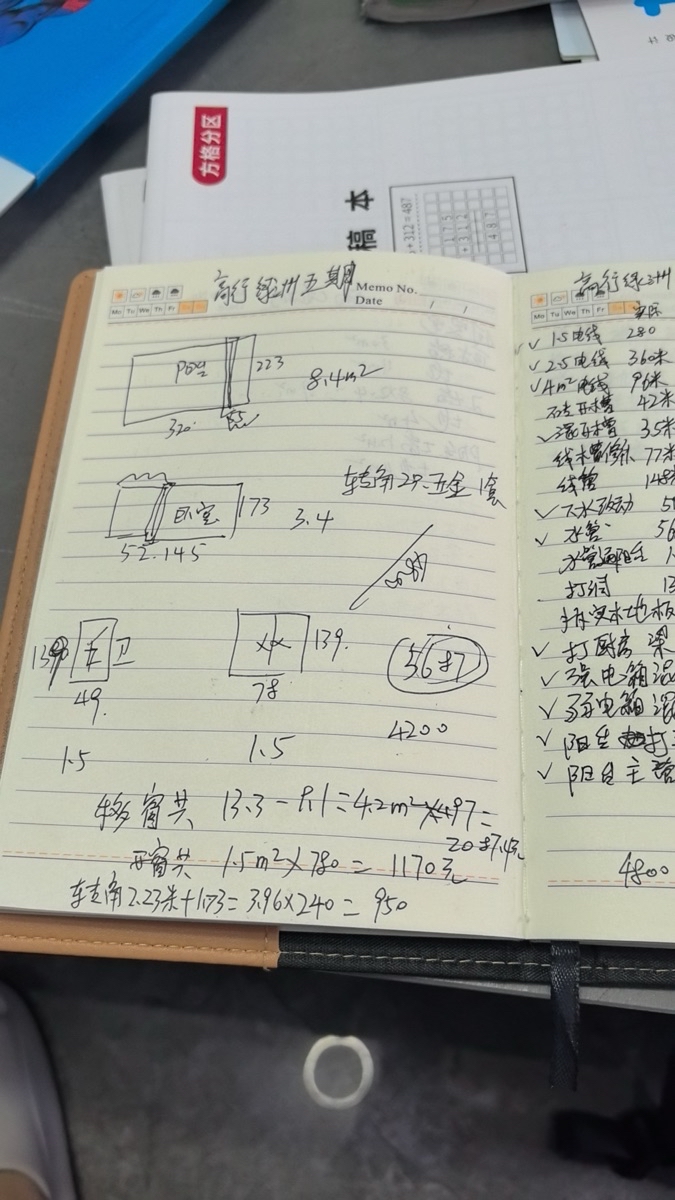 方格分区
稿 本
+312=487
175
+312
487
高行绿洲五期
Memo No.
Date / /
Mo Tu We Th Fr
阳台
223
8.4m²
320
85
卧室
173
3.4
52.145
转角2只.五金1套
139
卫
49
139.
78
5687
4200
1.5
1.5
移窗共 13.3-9.1=4.2m²×497=
2087.4元
开窗共 1.5m²×780=1170元
转角2.23米+1.73=3.96×240=950
高行绿洲
Mo Tu We Th Fr
实际
✓1.5电线 280
✓2.5电线 360米
✓4m²电线 96米
砖开槽 42米
✓混开槽 35米
77米
线管 148
✓下水改动
✓水管 56
打洞 13
拆实木地板
✓打厨房梁
✓强电箱混
✓弱电箱混
✓阳台
✓阳台主管
4800